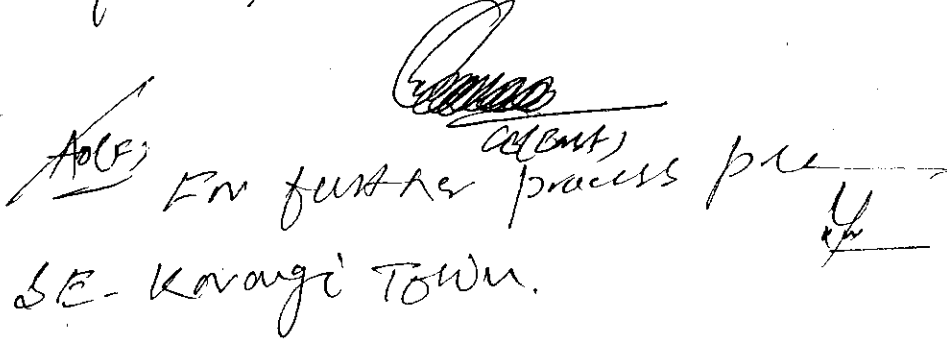 AO(F)
For further process ple
SE- Korangi Town.